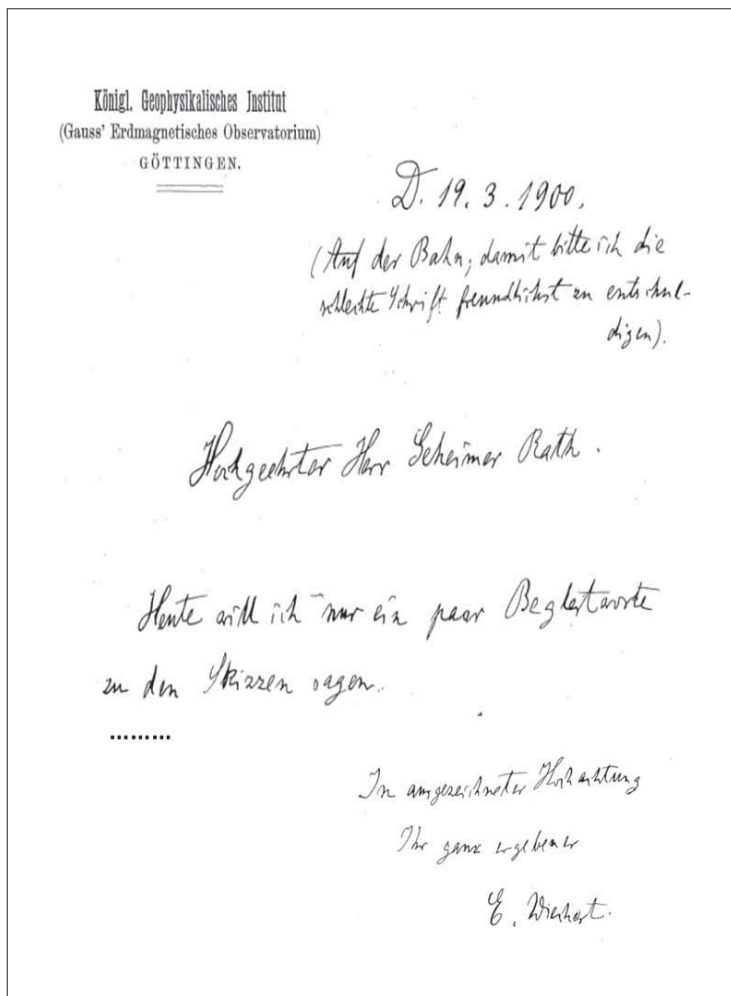 Königl. Geophysikalisches Institut
(Gauss' Erdmagnetisches Observatorium)
GÖTTINGEN.
D. 19. 3. 1900.
(Auf der Bahn; damit bitte ich die
schlechte Schrift freundlichst zu entschul-
digen).
Hochgeehrter Herr Geheimer Rath.
Heute will ich nur ein paar Begleitworte
zu den Skizzen sagen.
.........
In ausgezeichneter Hochachtung
Ihr ganz ergebener
E. Wiechert.